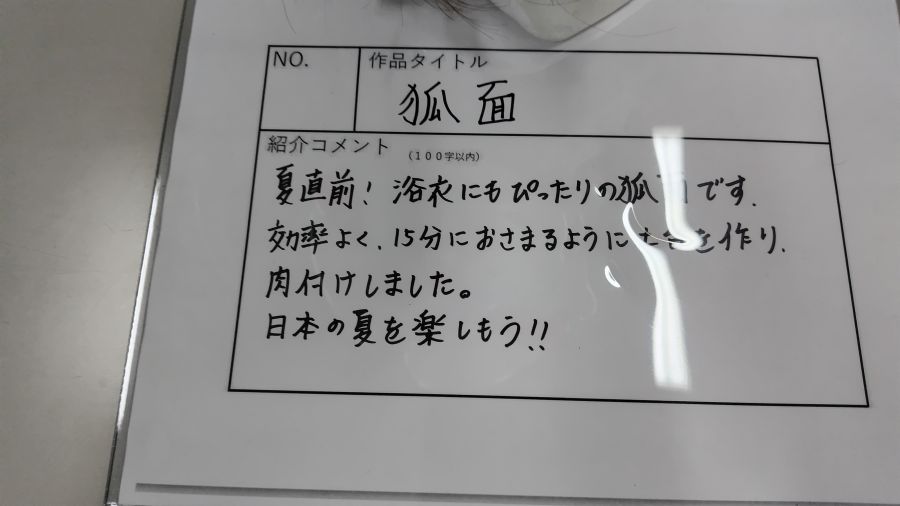 NO.
作品タイトル
狐面
紹介コメント
(100字以内)
夏直前! 浴衣にもぴったりの狐 です.
効率よく, 15分におさまるように を作り,
肉付けしました。
日本の夏を楽しもう!!